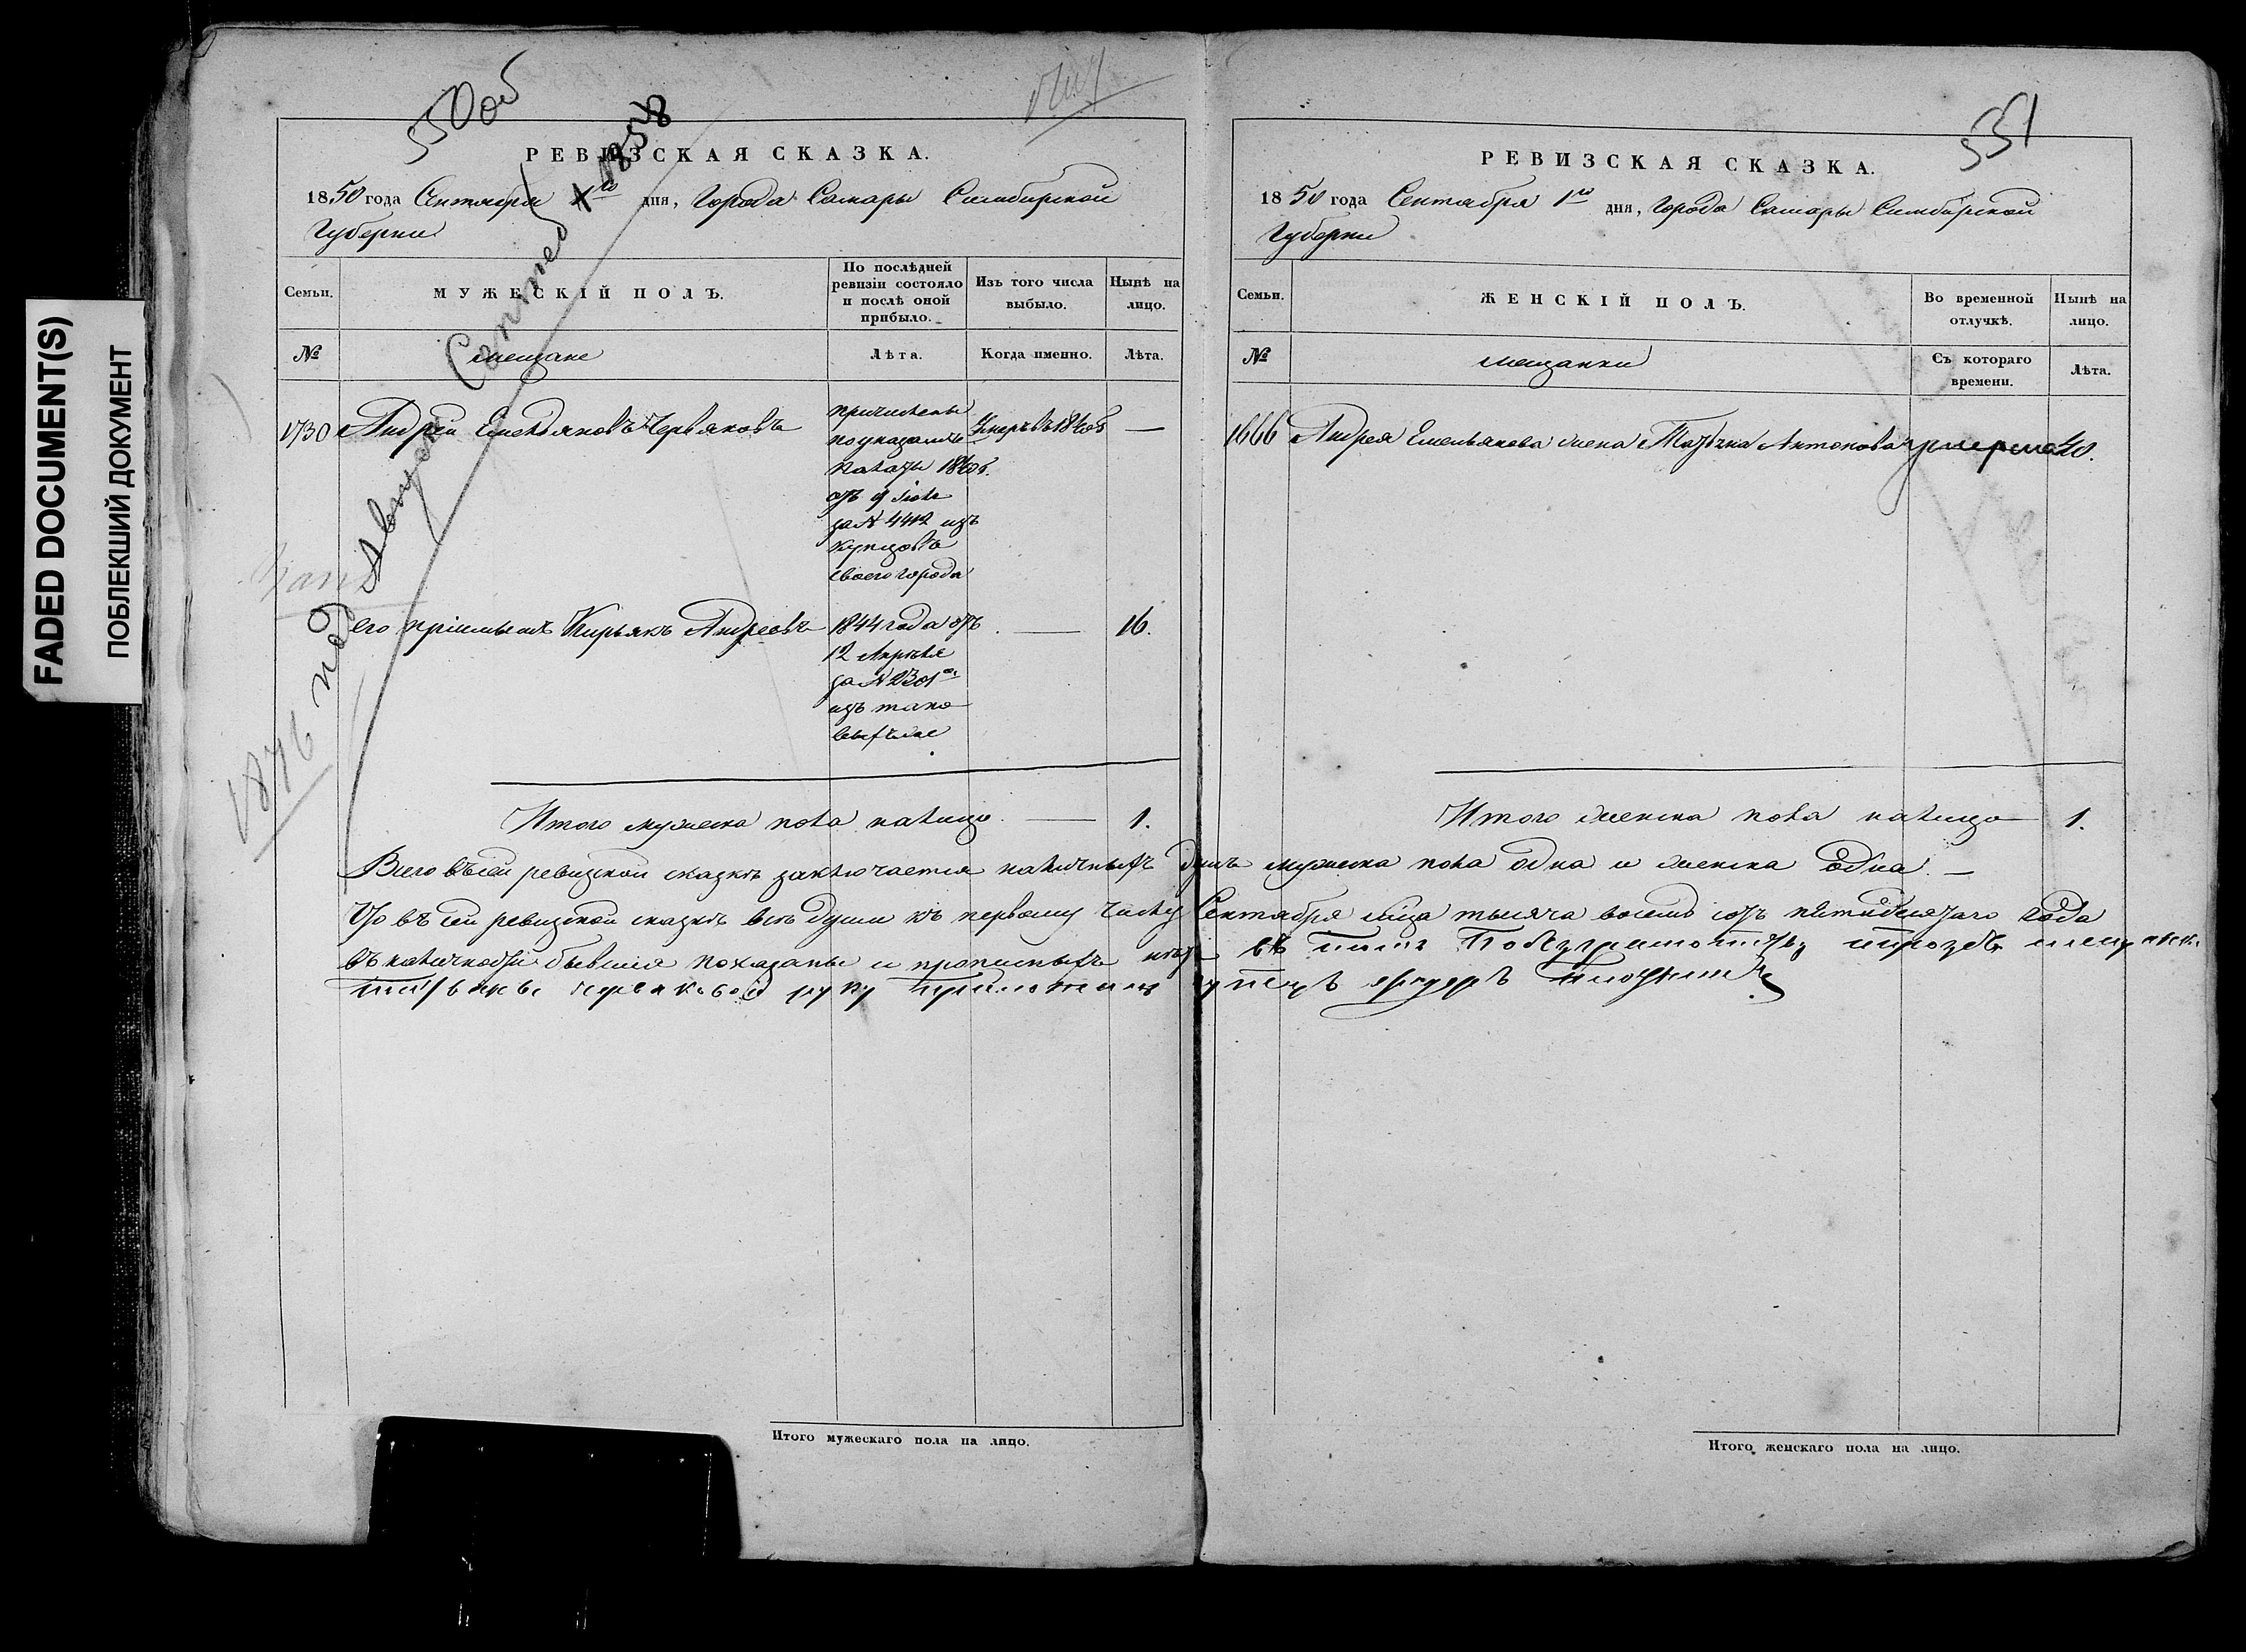 FADED DOCUMENT(S)
ПОБЛЕКШИЙ ДОКУМЕНТ
550об
РЕВИЗСКАЯ СКАЗКА.
1850 года Сентября 1го дня, Города Самары Симбирской
Губернии
Семьи.
МУЖЕСКІЙ ПОЛЪ.
По послѣдней ревизіи состояло и послѣ оной прибыло.
Изъ того числа выбыло.
Нынѣ на лицо.
№
мещане
Лѣта.
Когда именно.
Лѣта.
1730 Андрей Емельяновъ Червяковъ
причислены
по указамъ
палаты
отъ 9
за № 4412 изъ
купцовъ
своего города
Умеръ въ
—
его пріемышъ Кирьякъ Андреевъ
1844 года отъ
12 Апрѣля
за № 2301
изъ тако
выхъ же
—
16.
Итого мужеска пола налицо — 1.
1858
1876
551
РЕВИЗСКАЯ СКАЗКА.
1850 года Сентября 1го дня, Города Самары Симбирской
Губернии
Семьи.
ЖЕНСКІЙ ПОЛЪ.
Во временной отлучкѣ.
Нынѣ на лицо.
№
мещанки
Съ котораго времени.
Лѣта.
1666 Андрея Емельянова жена Антонова умерла 40.
Итого женска пола налицо 1.
Всего въ сей ревизской сказкѣ заключается наличныхъ душъ мужеска пола одна и женска одна. —
Что въ сей ревизской сказкѣ всѣ души къ первому числу Сентября мца тысяча восемь сотъ пятидесятаго года
въ наличности бывшия показаны и прописныхъ нѣтъ въ томъ
руку приложилъ купецъ
Итого мужескаго пола на лицо.
Итого женскаго пола на лицо.